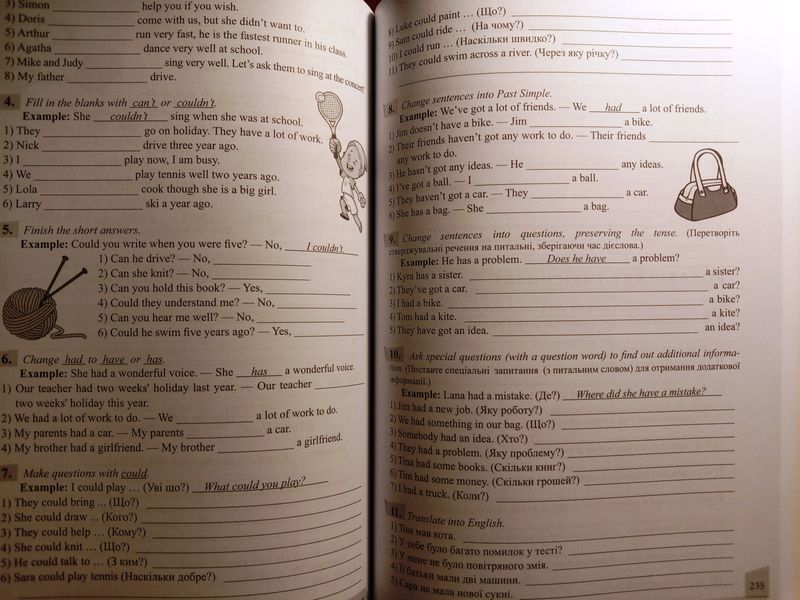 3) Simon ____________ help you if you wish.
4) Doris ____________ come with us, but she didn't want to.
5) Arthur ____________ run very fast, he is the fastest runner in his class.
6) Agatha ____________ dance very well at school.
7) Mike and Judy ____________ sing very well. Let's ask them to sing at the concert
8) My father ____________ drive.
4. Fill in the blanks with can't or couldn't.
Example: She couldn't sing when she was at school.
1) They ____________ go on holiday. They have a lot of work.
2) Nick ____________ drive three year ago.
3) I ____________ play now, I am busy.
4) We ____________ play tennis well two years ago.
5) Lola ____________ cook though she is a big girl.
6) Larry ____________ ski a year ago.
5. Finish the short answers.
Example: Could you write when you were five? — No, I couldn't.
1) Can he drive? — No, ____________
2) Can she knit? — No, ____________
3) Can you hold this book? — Yes, ____________
4) Could they understand me? — No, ____________
5) Can you hear me well? — No, ____________
6) Could he swim five years ago? — Yes, ____________
6. Change had to have or has.
Example: She had a wonderful voice. — She has a wonderful voice.
1) Our teacher had two weeks' holiday last year. — Our teacher ____________
two weeks' holiday this year.
2) We had a lot of work to do. — We ____________ a lot of work to do.
3) My parents had a car. — My parents ____________ a car.
4) My brother had a girlfriend. — My brother ____________ a girlfriend.
7. Make questions with could.
Example: I could play … (Уві що?) What could you play?
1) They could bring ... (Що?)
2) She could draw ... (Кого?)
3) They could help … (Кому?)
4) She could knit … (Що?)
5) He could talk to … (З ким?)
6) Sara could play tennis (Наскільки добре?)
8) Luke could paint … (Що?)
9) Sam could ride … (На чому?)
10) I could run … (Наскільки швидко?)
11) They could swim across a river. (Через яку річку?)
8. Change sentences into Past Simple.
Example: We've got a lot of friends. — We had a lot of friends.
1) Jim doesn't have a bike. — Jim ____________ a bike.
2) Their friends haven't got any work to do. — Their friends ____________
any work to do.
3) He hasn't got any ideas. — He ____________ any ideas.
4) I've got a ball. — I ____________ a ball.
5) They haven't got a car. — They ____________ a car.
6) She has a bag. — She ____________ a bag.
9. Change sentences into questions, preserving the tense. (Перетворіть
стверджувальні речення на питальні, зберігаючи час дієслова.)
Example: He has a problem. Does he have a problem?
1) Kyra has a sister. ____________ a sister?
2) They've got a car. ____________ a car?
3) I had a bike. ____________ a bike?
4) Tom had a kite. ____________ a kite?
5) They have got an idea. ____________ an idea?
10. Ask special questions (with a question word) to find out additional informa-
tion. (Поставте спеціальні запитання (з питальним словом) для отримання додаткової
інформації.)
Example: Lana had a mistake. (Де?) Where did she have a mistake?
1) Jim had a new job. (Яку роботу?)
2) We had something in our bag. (Що?)
3) Somebody had an idea. (Хто?)
4) They had a problem. (Яку проблему?)
5) Tina had some books. (Скільки книг?)
6) Tim had some money. (Скільки грошей?)
7) I had a truck. (Коли?)
11. Translate into English.
1) Том мав кота.
2) У тебе було багато помилок у тесті?
3) У мене не було повітряного змія.
4) Її батьки мали дві машини.
5) Сара не мала нової сукні.
235